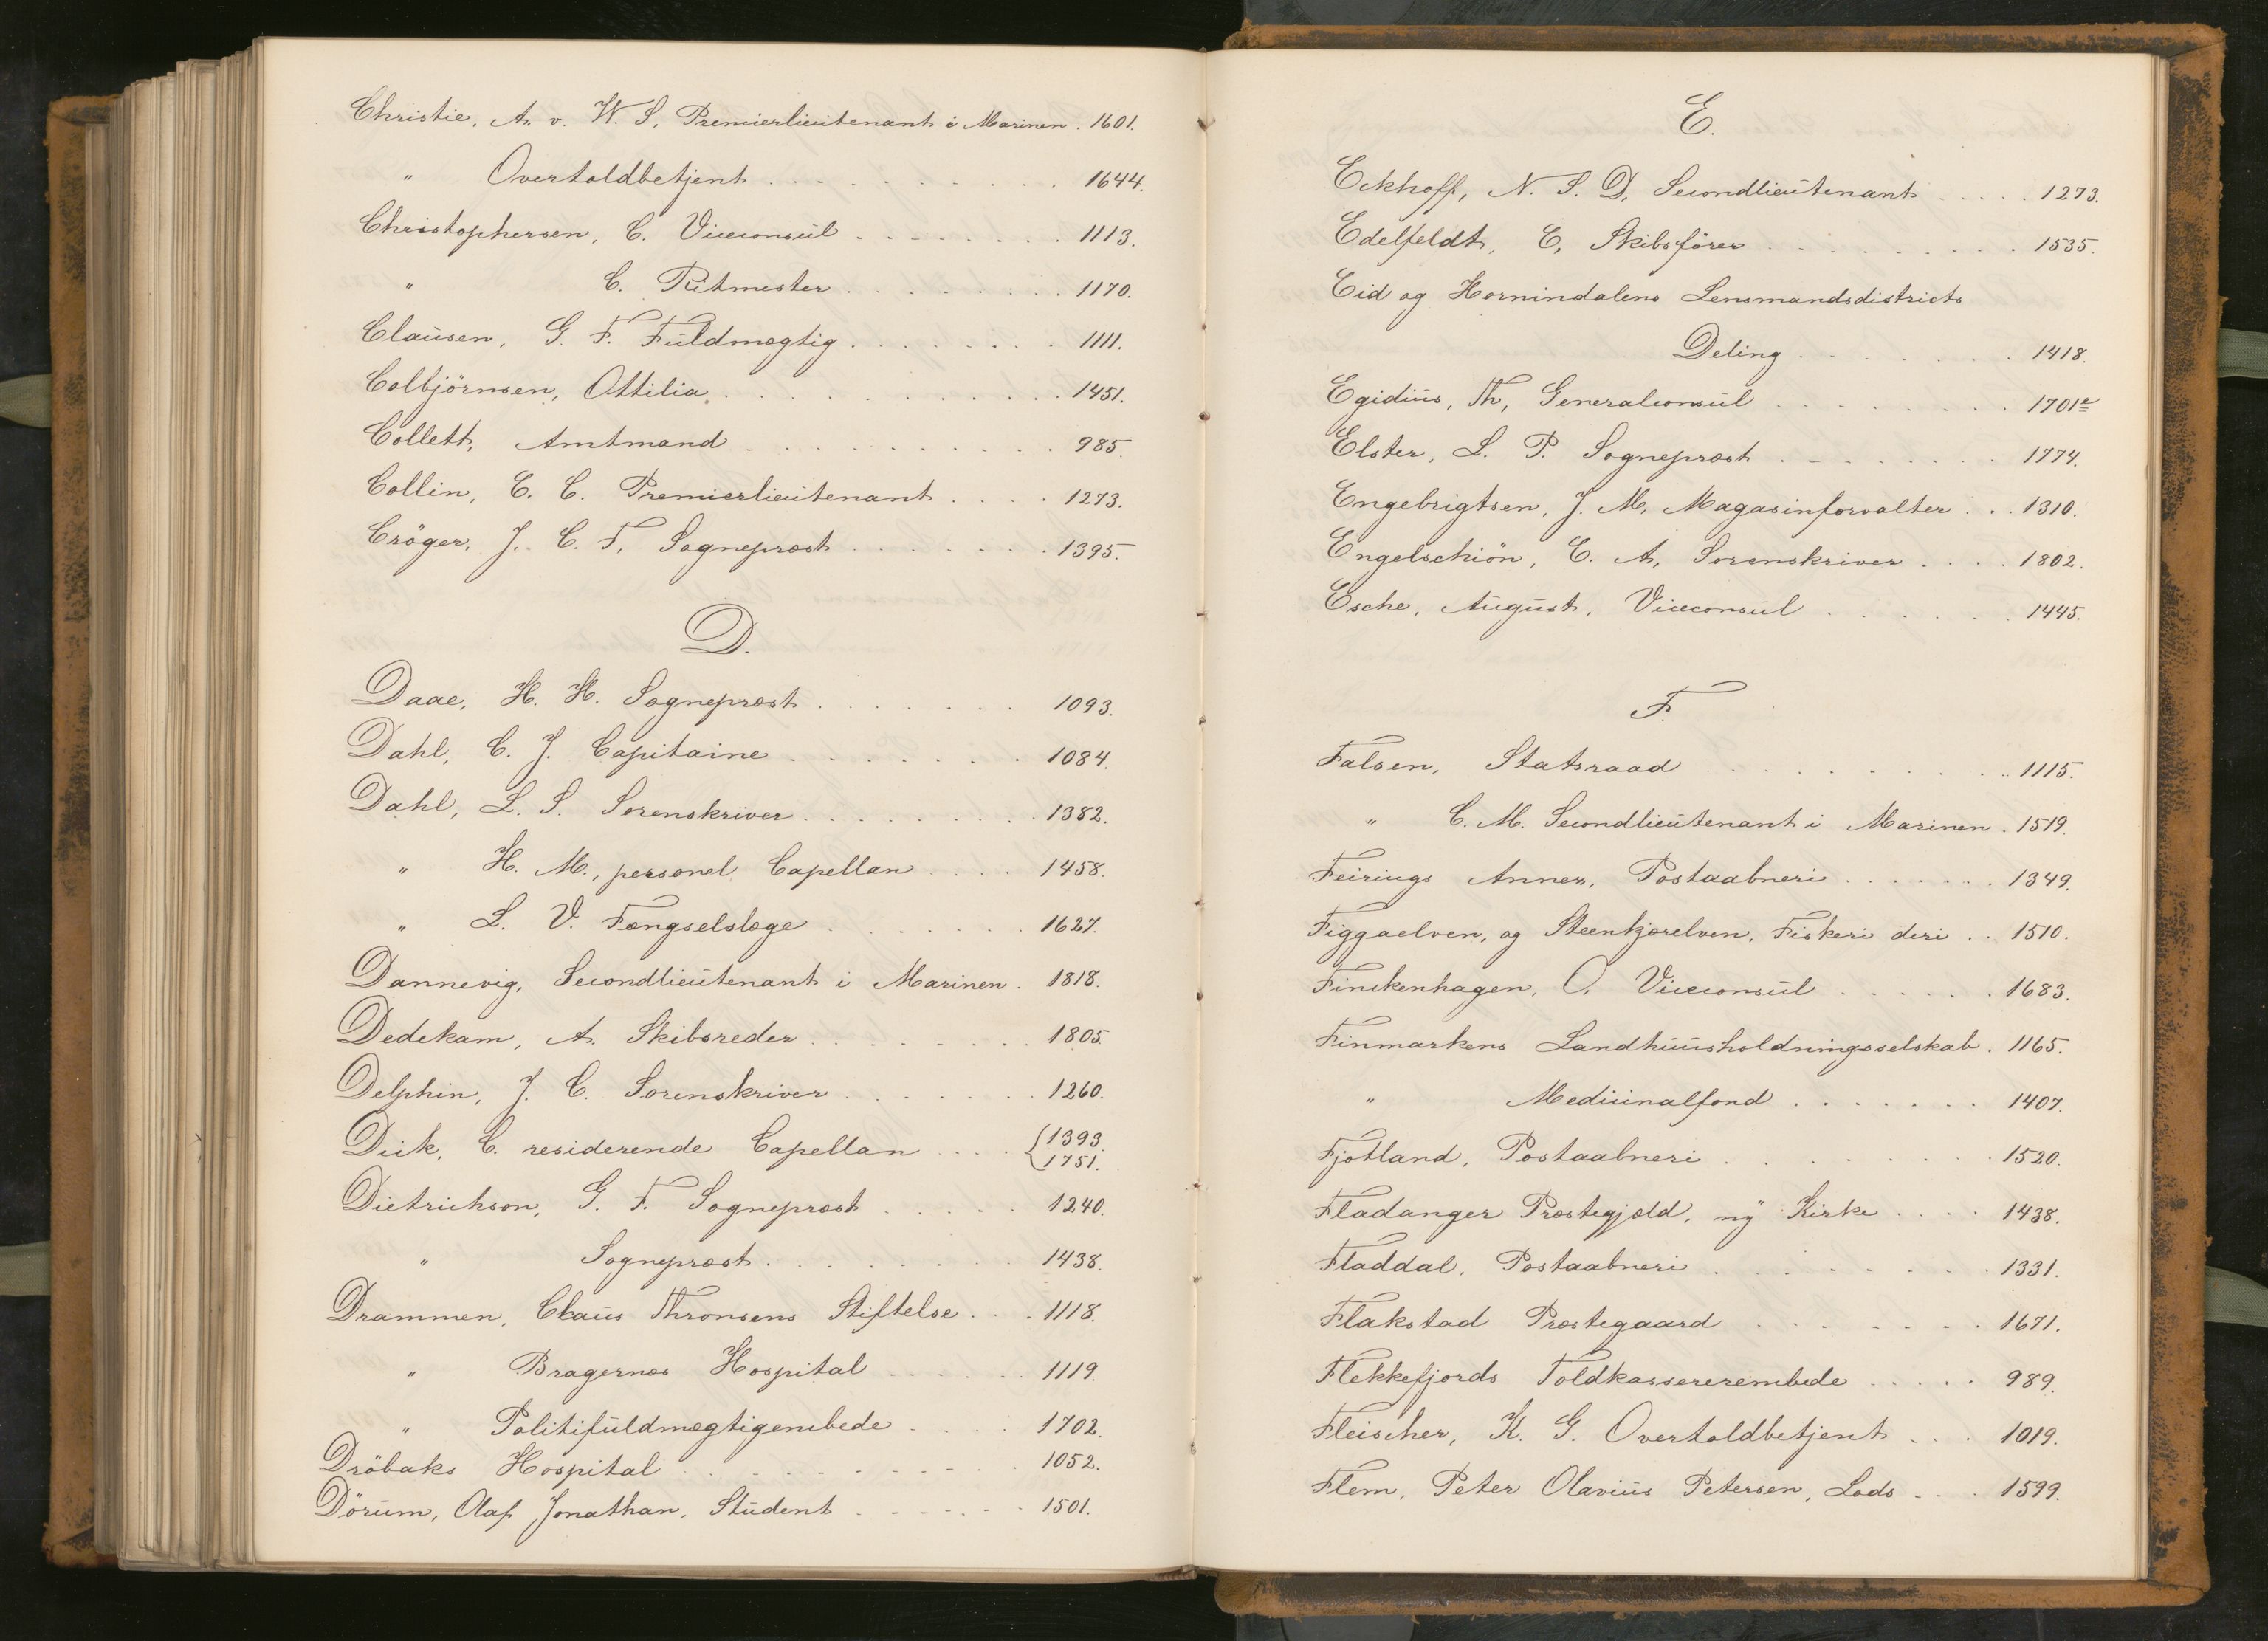 Christie, A. v. W. S, Premierlieutenant i Marinen . 1601.
" Overtoldbetjent . . . . . . . . . . . 1644.
Christophersen, C. Viceconsul . . . . . . . . 1113.
" C. Ritmester . . . . . . . . 1170.
Clausen, G. F. Fuldmægtig . . . . . . . . 1111.
Colbjörnsen, Ottilia . . . . . . . . . . . . 1451.
Collett, Amtmand . . . . . . . . . . . 985.
Collin, C. C. Premierlieutenant . . . . 1273.
Cröger, J. C. F, Sogneprest . . . . . . . . 1395.
D.
Daae, H. H. Sogneprest . . . . . . . 1093.
Dahl, C. J. Capitaine . . . . . . . . 1084.
Dahl, L. S. Sorenskriver . . . . . . . . . 1382.
" H. M., personel Capellan . . . . 1458.
" L. V. Fængselslæge . . . . . . . 1627.
Dannevig, Secondlieutenant i Marinen . 1818.
Dedekam, A. Skibsreder . . . . . . . . 1805.
Delphin, J. C. Sorenskriver . . . . . . . 1260.
Diik, C. residerende Capellan . . . . { 1393.
1751.
Dietrichson, G. F. Sogneprest . . . . . 1240.
" Sogneprest . . . . . . . . 1438.
Drammen, Claus Thronsens Stiftelse . . . 1118.
" Bragernæs Hospital . . . . . . 1119.
" Politifuldmægtigembede . . . . 1702.
Dröbaks Hospital . . . . . . . . . . 1052.
Dörum, Olaf Jonathan, Student . . . . . . 1501.
E.
Eckhoff, N. S. D, Secondlieutenant . . . . . 1273.
Edelfeldt, C, Skibsförer . . . . . . . . . 1535.
Eid og Hornindalens Lensmandsdistricts
Deling . . . . . . . . 1418.
Egidius, Th, Generalconsul . . . . . . . . . 1701
Elster, L. P. Sogneprest . . . . . . . . 1774.
Engebrigtsen, J. M, Magasinforvalter . . . 1310.
Engelschiön, C. A, Sorenskriver . . . . 1802.
Esche, August, Viceconsul . . . . . . . 1445.
F.
Falsen, Statsraad . . . . . . . . . . 1115.
" C. M. Secondlieutenant i Marinen . 1519.
Feirings Annex, Postaabneri . . . . . . . 1349.
Figgaelven, og Steenkjærelven, Fiskeri deri . . 1510.
Finckenhagen, O, Viceconsul . . . . . . 1683.
Finmarkens Landhuusholdningsselskab . 1165.
" Medicinalfond . . . . . . . 1407.
Fjotland, Postaabneri . . . . . . . . . 1520.
Fladanger Præstegjæld, ny Kirke . . . . 1438.
Fladdal, Postaabneri . . . . . . . . . 1331.
Flakstad Præstegaard . . . . . . . . 1671.
Flekkefjords Toldkassererembede . . . . . 989.
Fleischer, K. G. Overtoldbetjent . . . 1019.
Flem, Peter Olavius Petersen, Lods . . . 1599.